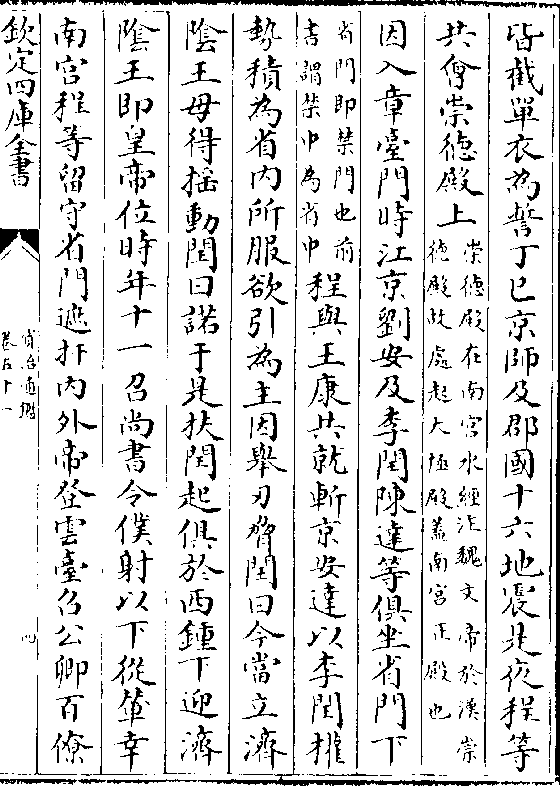 皆截單衣為誓丁巳京師及郡國十六地震是夜程等
共會崇德殿上崇德殿在南宮水經注魏文帝於漢崇
德殿故處起大極殿蓋南宮正殿也
因入章臺門時江京劉安及李閏陳達等俱坐省門下
省門即禁門也前
書謂禁中為省中程與王康共就斬京安達以李閏權
埶積為省内所服欲引為主因舉刃脅閏曰今當立濟
陰王毋得揺動閏曰諾于是扶閏起俱於西鍾下迎濟
陰王即皇帝位時年十一召尚書令僕射以下從輦幸
南宮程等留守省門遮扞内外帝登雲臺召公卿百僚
欽定四庫全書
資治通鑑
卷五十一
四